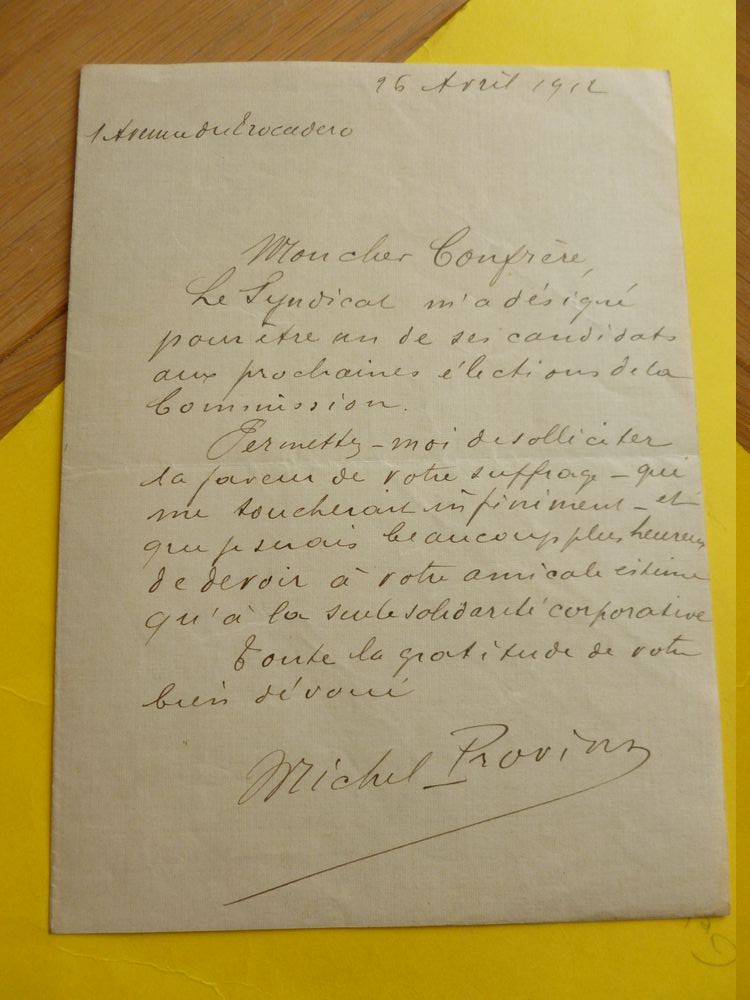 26 Avril 1912
1 Avenue du Trocadero
Mon cher Confrère,
Le Syndicat m'a désigné
pour être un de ses candidats
aux prochaines élections de la
Commission.
Permettez-moi de solliciter
la faveur de votre suffrage - qui
me toucherait infiniment - et
que je serais beaucoup plus heureux
de devoir à votre amicale estime
qu'à la seule solidarité corporative
Toute la gratitude de votre
bien dévoué
Michel Provins